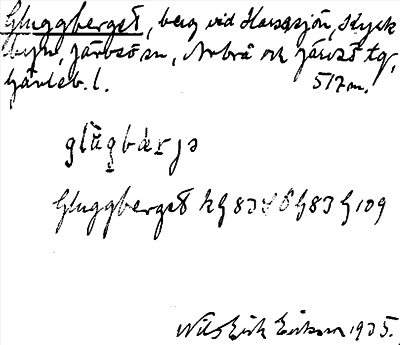 Gluggberget, berg vid Harsasjön, Kyrk
byn, Järvsö sn, Arbrå och Järvsö tg,
Gävleb. l. 517 m.
glùgbær̀jə
Gluggberget hG83 V Ö G83 G 109
Nils Erik Eriksson 1935.